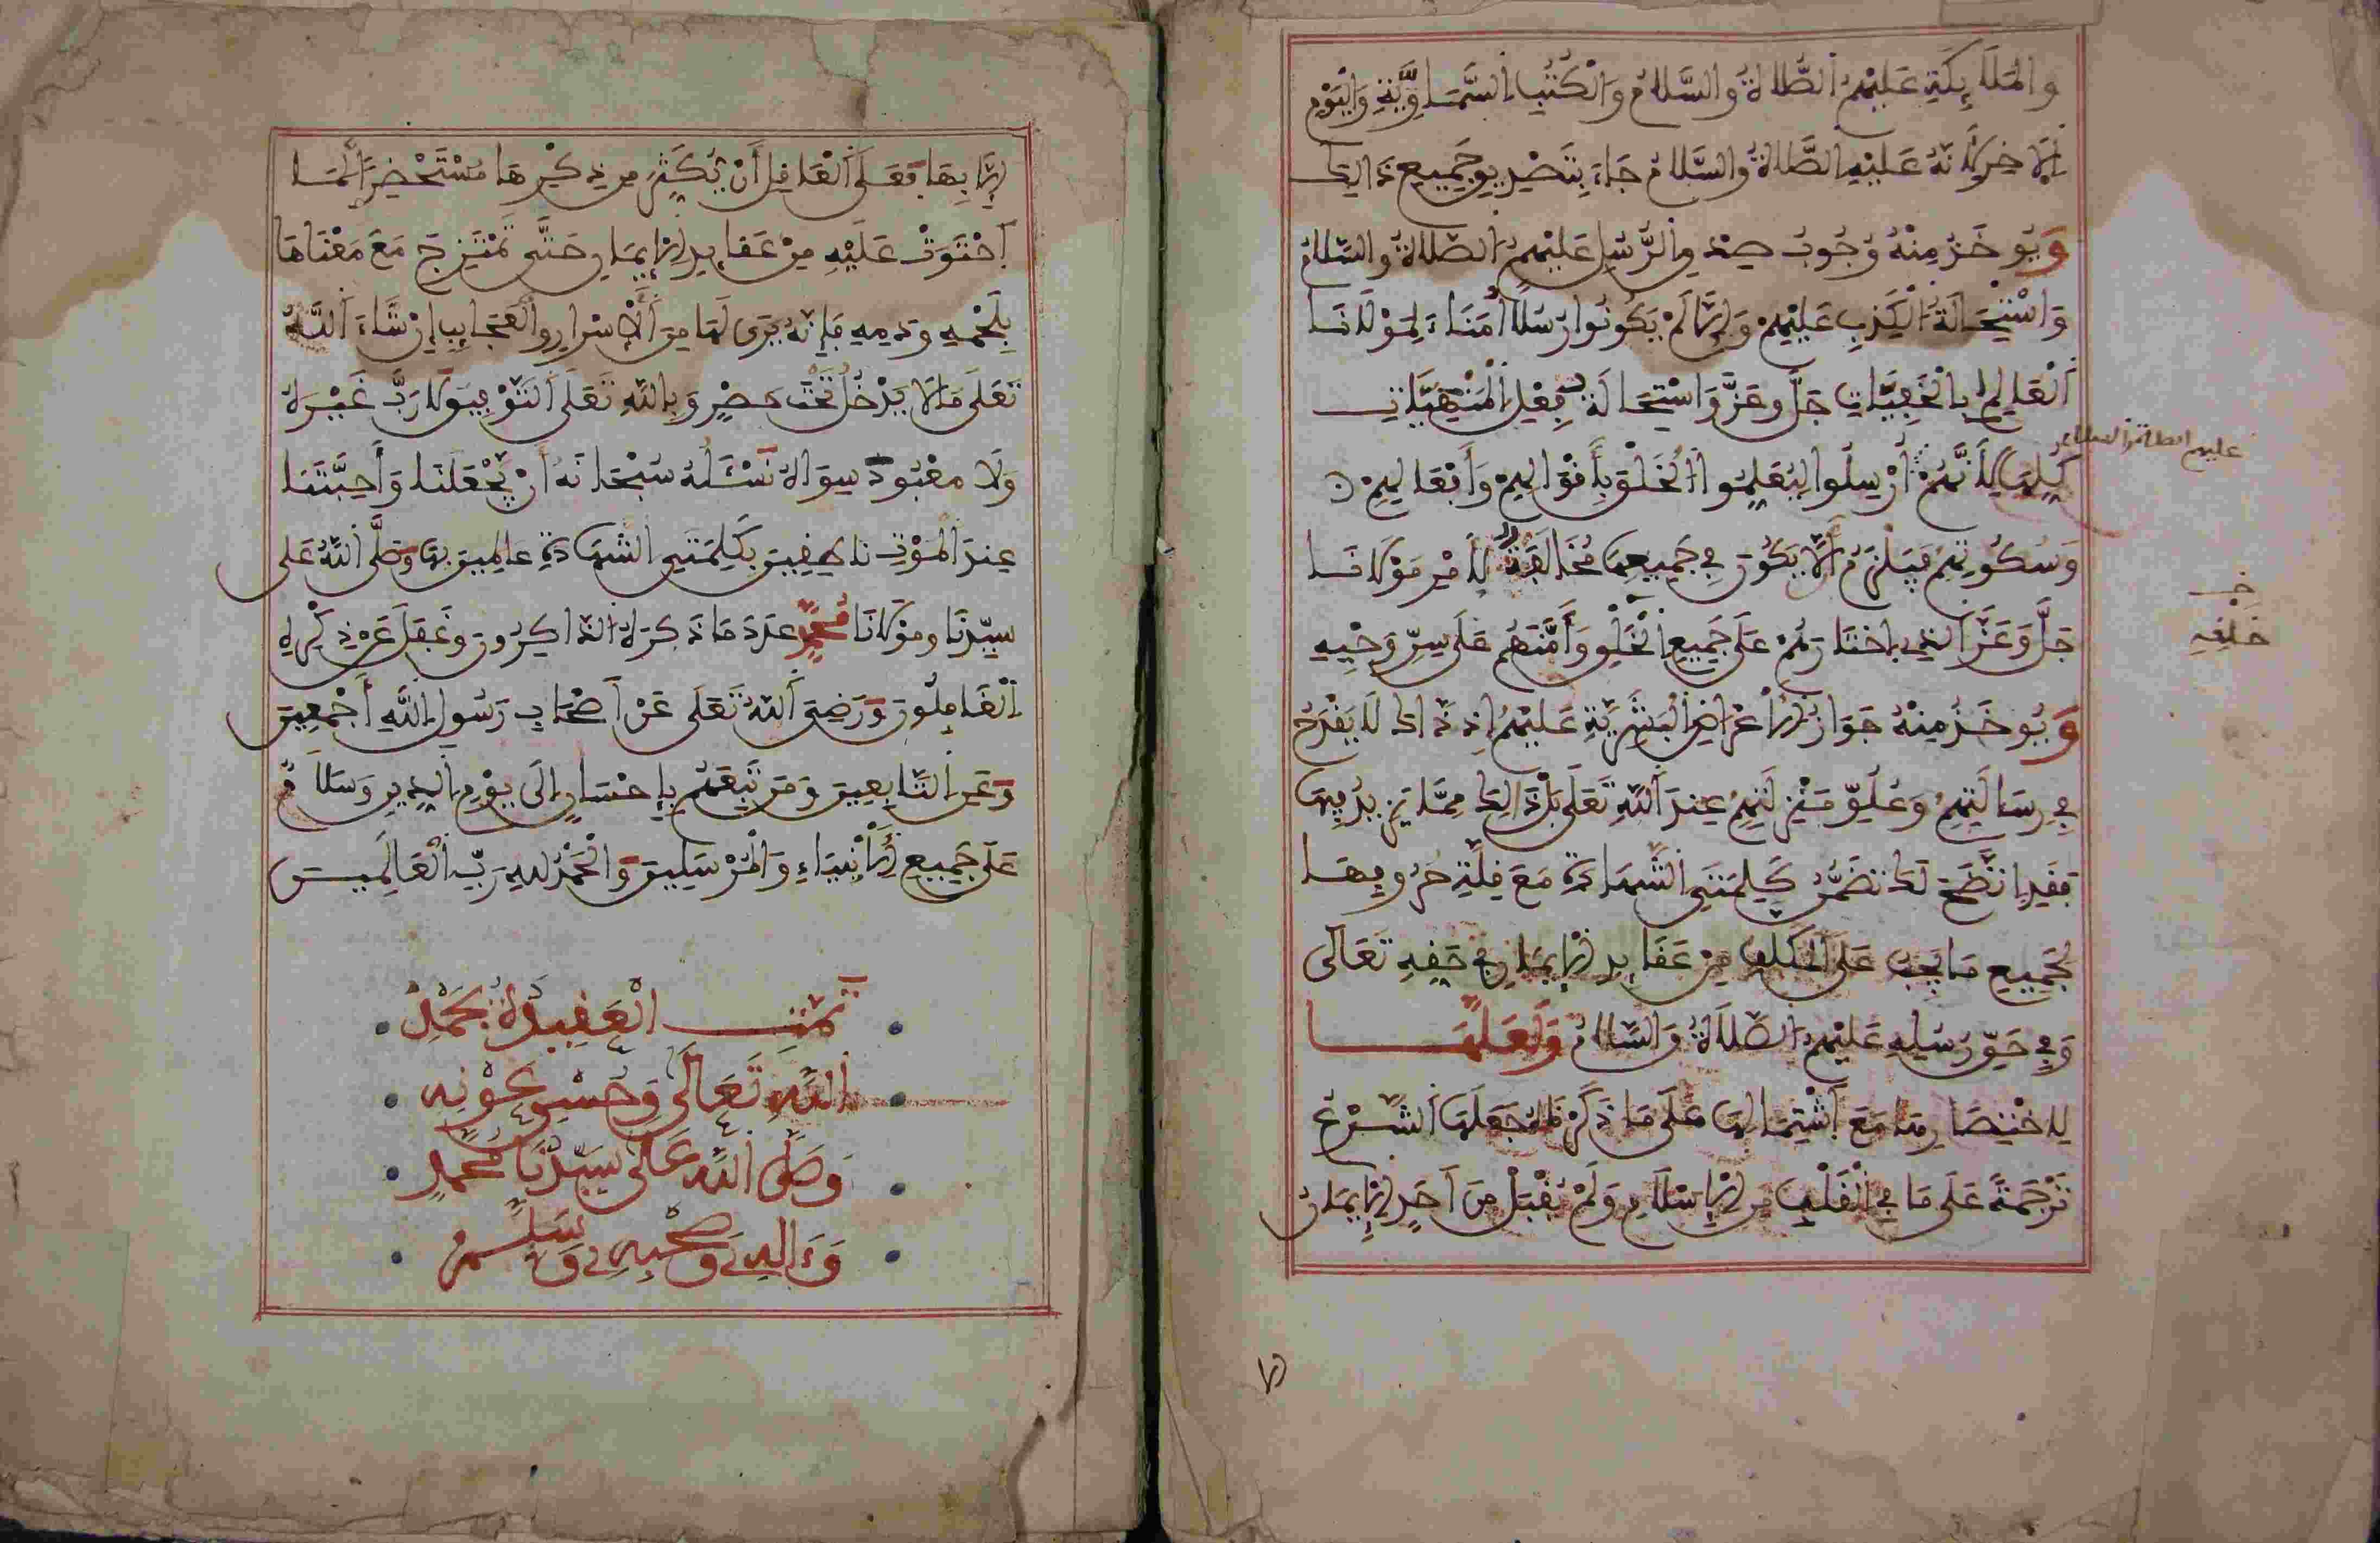 والمَلَآئِكَةِ عَلَيْهِمُ الصَّلَاةُ وَالسَّلَامُ وَالْكُتُبِ السَّمَاوِيَّةِ وَالْيَوْمِ
اَلَاخِرِ لِأَنَّهُ عَلَيْهِ الصَّلَاةُ وَالسَّلَامُ جَاءَ بِتَصْدِيقِ جَمِيعِ ذَالِكَ
وَيُوخَذُ مِنْهُ وُجُوبُ صِدْقِ الرُّسُلِ عَلَيْهِمُ الصَّلَاةُ وَالسَّلَامُ
وَاسْتِحَالَةُ الْكَذِبِ عَلَيْهِمْ وَإِلَّا لَمْ يَكُونُوا رُسُلًا أُمَنَاءَ لِمَوْلَانَا
اَلْعَالِمِ بِالْخَفِيَّاتِ جَلَّ وَعَزَّ وَاسْتِحَالَةُ فِعْلِ الْمَنْهِيَّاتِ
كُلِّهَا لِأَنَّهُمْ أُرْسِلُوا لِيُعَلِّمُوا الْخَلْقَ بِأَقْوَالِهِمْ وَأَفْعَالِهِمْ
عليهم الصلاة والسلام
وَسُكُوتِهِمْ فَيَلْزَمُ أَلَّا يَكُونَ فِي جَمِيعِهَا مُخَالَفَةٌ لِأَمْرِ مَوْلَانَا
جَلَّ وَعَزَّ الَّذِي اخْتَارَهُمْ عَلَى جَمِيعِ الْخَلْقِ وَأَمَّنَهُمْ عَلَى سِرِّ وَحْيِهِ
خ
خَلْقِهِ
وَيُوخَذُ مِنْهُ جَوَازُ الْأَعْرَاضِ الْبَشَرِيَّةِ عَلَيْهِمْ إِذْ ذَاكَ لَا يَقْدَحُ
فِي رِسَالَتِهِمْ وَعُلُوِّ مَنْزِلَتِهِمْ عِنْدَ اللَّهِ تَعَلَى بَلْ ذَالِكَ مِمَّا يَزِيدُ فِيهَا
فَقَدِ اتَّضَحَ لَكَ تَضَمُّنُ كَلِمَتَيِ الشَّهَادَةِ مَعَ قِلَّةِ حُرُوفِهَا
لِجَمِيعِ مَا يَجِبُ عَلَى الْمُكَلَّفِ مِنْ عَقَائِدِ الْإِيمَانِ فِي حَقِّهِ تَعَالَى
وَفِي حَقِّ رُسُلِهِ عَلَيْهِمُ الصَّلَاةُ وَالسَّلَامُ وَلَعَلَّهَا
لِاخْتِصَارِهَا مَعَ اَشْتِمَالِهَا عَلَى مَا ذَكَرْنَاهُ جَعَلَهَا الشَّرْعُ
تَرْجَمَةً عَلَى مَا فِي الْقَلْبِ مِنَ الْإِسْلَامِ وَلَمْ يُقْبَلْ مِنْ أَحَدٍ الْإِيمَانُ
إِلَّا بِهَا فَعَلَى الْعَاقِلِ أَنْ يُكَثِّرَ مِنْ ذِكْرِهَا مُسْتَحْضِرًا لِمَا
اَحْتَوَتْ عَلَيْهِ مِنْ عَقَائِدِ الْإِيمَانِ حَتَّى تَمْتَزِجَ مَعَ مَعْنَاهَا
بِلَحْمِهِ وَدَمِهِ فَإِنَّهُ يَرَى لَهَا مِنَ الْأَسْرَارِ وَالْعَجَائِبِ إِنْ شَاءَ اللَّهُ
تَعَلَى مَا لَا يَدْخُلُ تَحْتَ حَصْرٍ وَبِاللَّهِ تَعَلَى التَّوْفِيقُ لَا رَبَّ غَيْرَهُ
وَلَا مَعْبُودَ سِوَاهُ نَسْئَلُهُ سُبْحَانَهُ أَنْ يَجْعَلَنَا وَأَحِبَّتَنَا
عِنْدَ الْمَوْتِ نَاطِقِينَ بِكَلِمَتَيِ الشَّهَادَةِ عَالِمِينَ بِهَا وَصَلَّى اللَّهُ عَلَى
سَيِّدِنَا وَمَوْلَانَا مُحَمَّدٍ عَدَدَ مَا ذَكَرَهُ الذَّاكِرُونَ وَغَفَلَ عَنْ ذِكْرِهِ
اَلْغَافِلُونَ وَرَضِيَ اللَّهُ تَعَلَى عَنْ أَصْحَابِ رَسُولِ اللَّهِ أَجْمَعِينَ
وَعَنِ التَّابِعِينَ وَمَنْ تَبِعَهُمْ بِإِحْسَانٍ إِلَى يَوْمِ الدِّينِ وَسَلَامٌ
عَلَى جَمِيعِ الْأَنْبِيَاءِ وَالْمُرْسَلِينَ وَالْحَمْدُ لِلهِ رَبِّ الْعَالَمِينَ
تَمَّتِ الْعَقِيدَةُ بِحَمْدِ
اللَّهِ تَعَالَى وَحُسْنِ عَوْنِهِ
وَصَلَّى اللَّهُ عَلَى سَيِّدِنَا مُحَمَّدٍ
وَءَالِهِ وَصَحْبِهِ وَسَلَّمَ